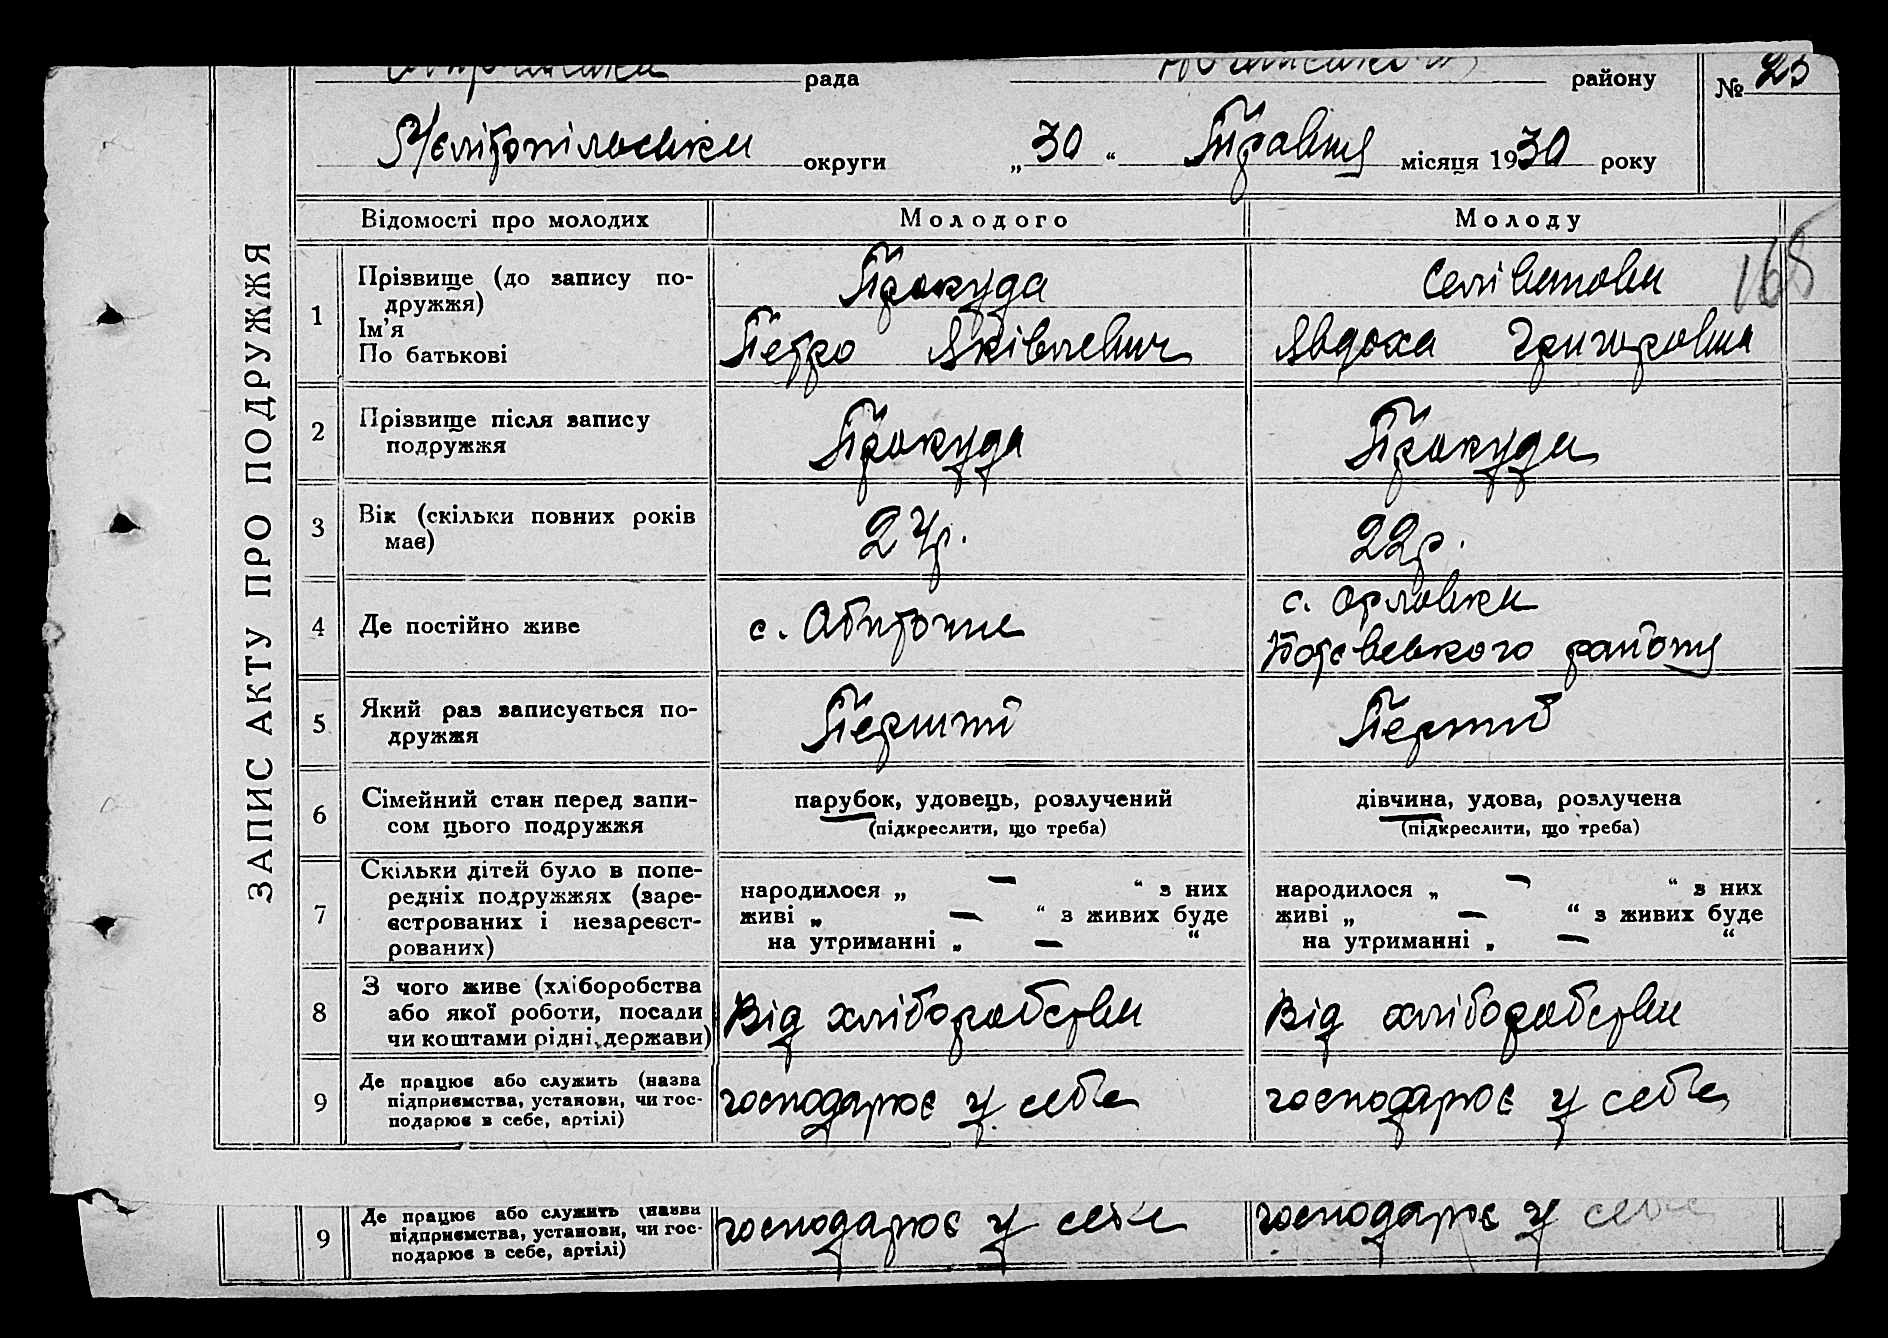 рада району № 25
Мелітопільська округи „30“ Травня місяця 1930 року
ЗАПИС АКТУ ПРО ПОДРУЖЖЯ
Відомості про молодих Молодого Молоду
168
1 Прізвище (до запису по-
дружжя)
Ім'я
По батькові
Прокуда
Петро Яківлевич
Селіванова
Явдоха Григоровна
2 Прізвище після запису
подружжя
Прокуда
Прокуда
3 Вік (скільки повних років
має)
24р.
22р.
4 Де постійно живе
с. Обиточне
с. Орловка
району
5 Який раз записується по-
дружжя
Перший
Перший
6 Сімейний стан перед запи-
сом цього подружжя
парубок, удовець, розлучений
(підкреслити, що треба)
дівчина, удова, розлучена
(підкреслити, що треба)
7 Скільки дітей було в попе-
редніх подружжях (заре-
єстрованих і незареєст-
рованих)
народилося „ — “ з них
живі „ — “ з живих буде
на утриманні „ — “
народилося „ — “ з них
живі „ — “ з живих буде
на утриманні „ — “
8 З чого живе (хліборобства
або якої роботи, посади
чи коштами рідні, держави)
Від хліборобства
Від хліборобства
9 Де працює або служить (назва
підприємства, установи, чи гос-
подарює в себе, артілі)
господарює у себе
господарює у себе
9 Де працює або служить (назва
підприємства, установи, чи гос-
подарює в себе, артілі)
господарює у себе
господарює у себе